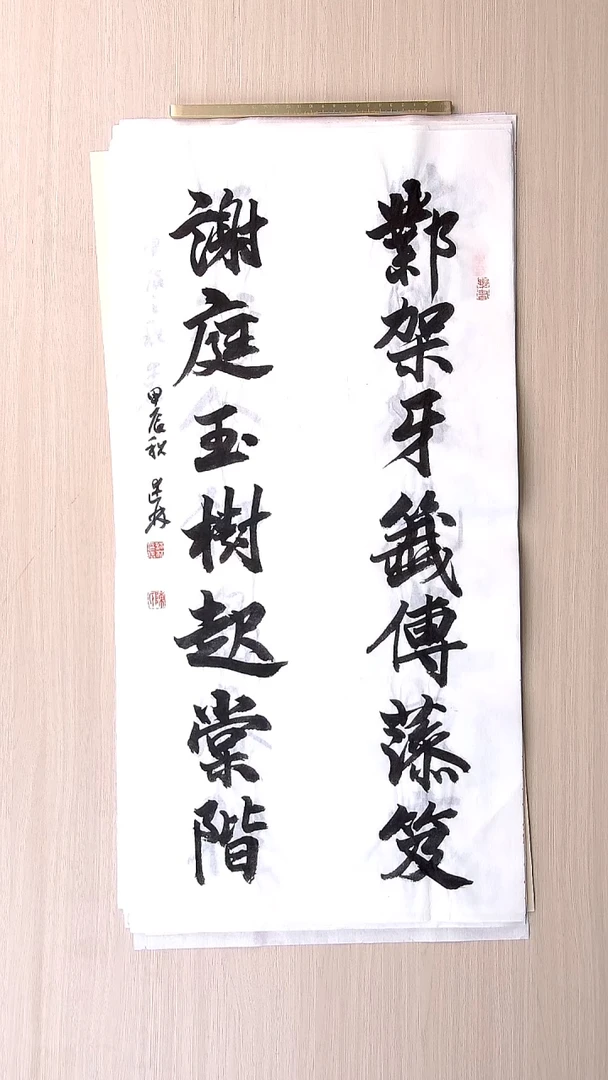 鄴架牙籤傳藻笈
謝庭玉樹起棠階
甲辰秋